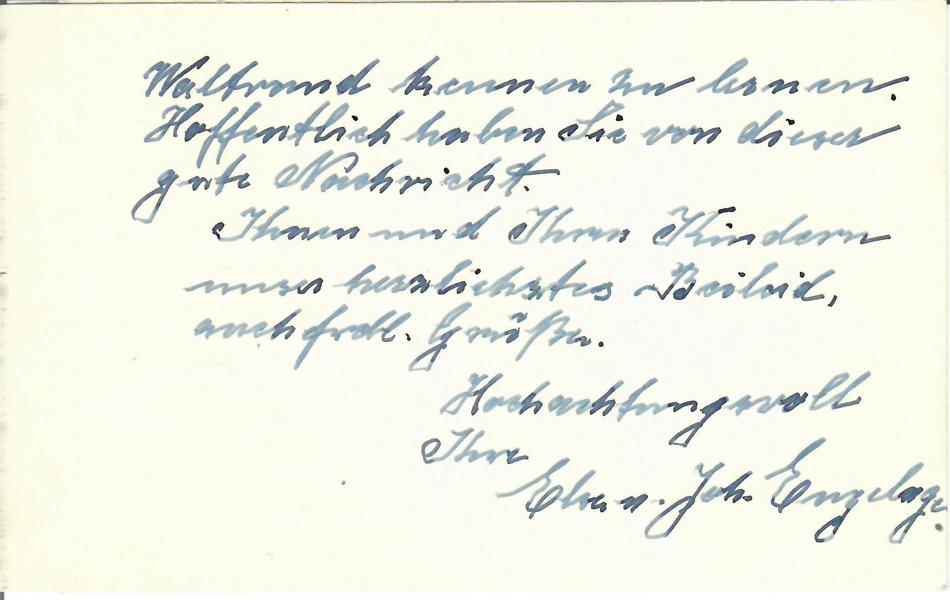 Waltraud kennen zu lernen.
Hoffentlich haben Sie von dieser
gute Nachricht.
Ihnen und Ihren Kindern
unser herzlichstes Beileid,
auch frdl. Grüße.
Hochachtungsvoll
Ihre
u. Joh. Engelage.